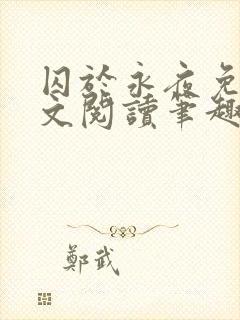 囚於永夜免
文閱讀筆趣
鄭武